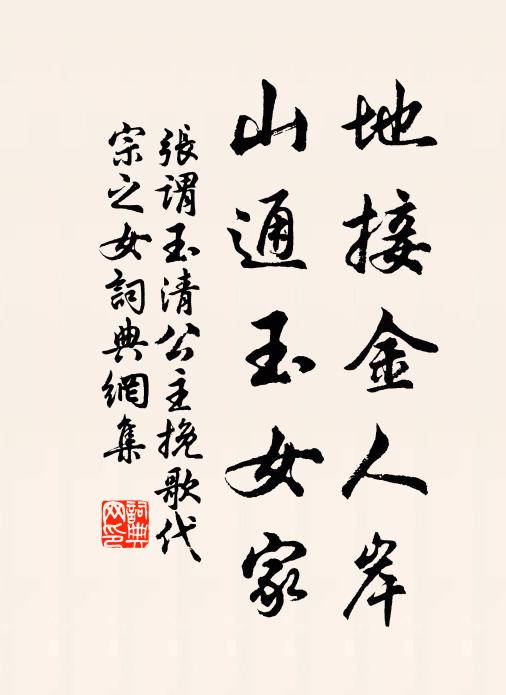 地接金人岸
山通玉女家
張謂玉清公主挽歌代
宗之女詞典網集
詞典網印